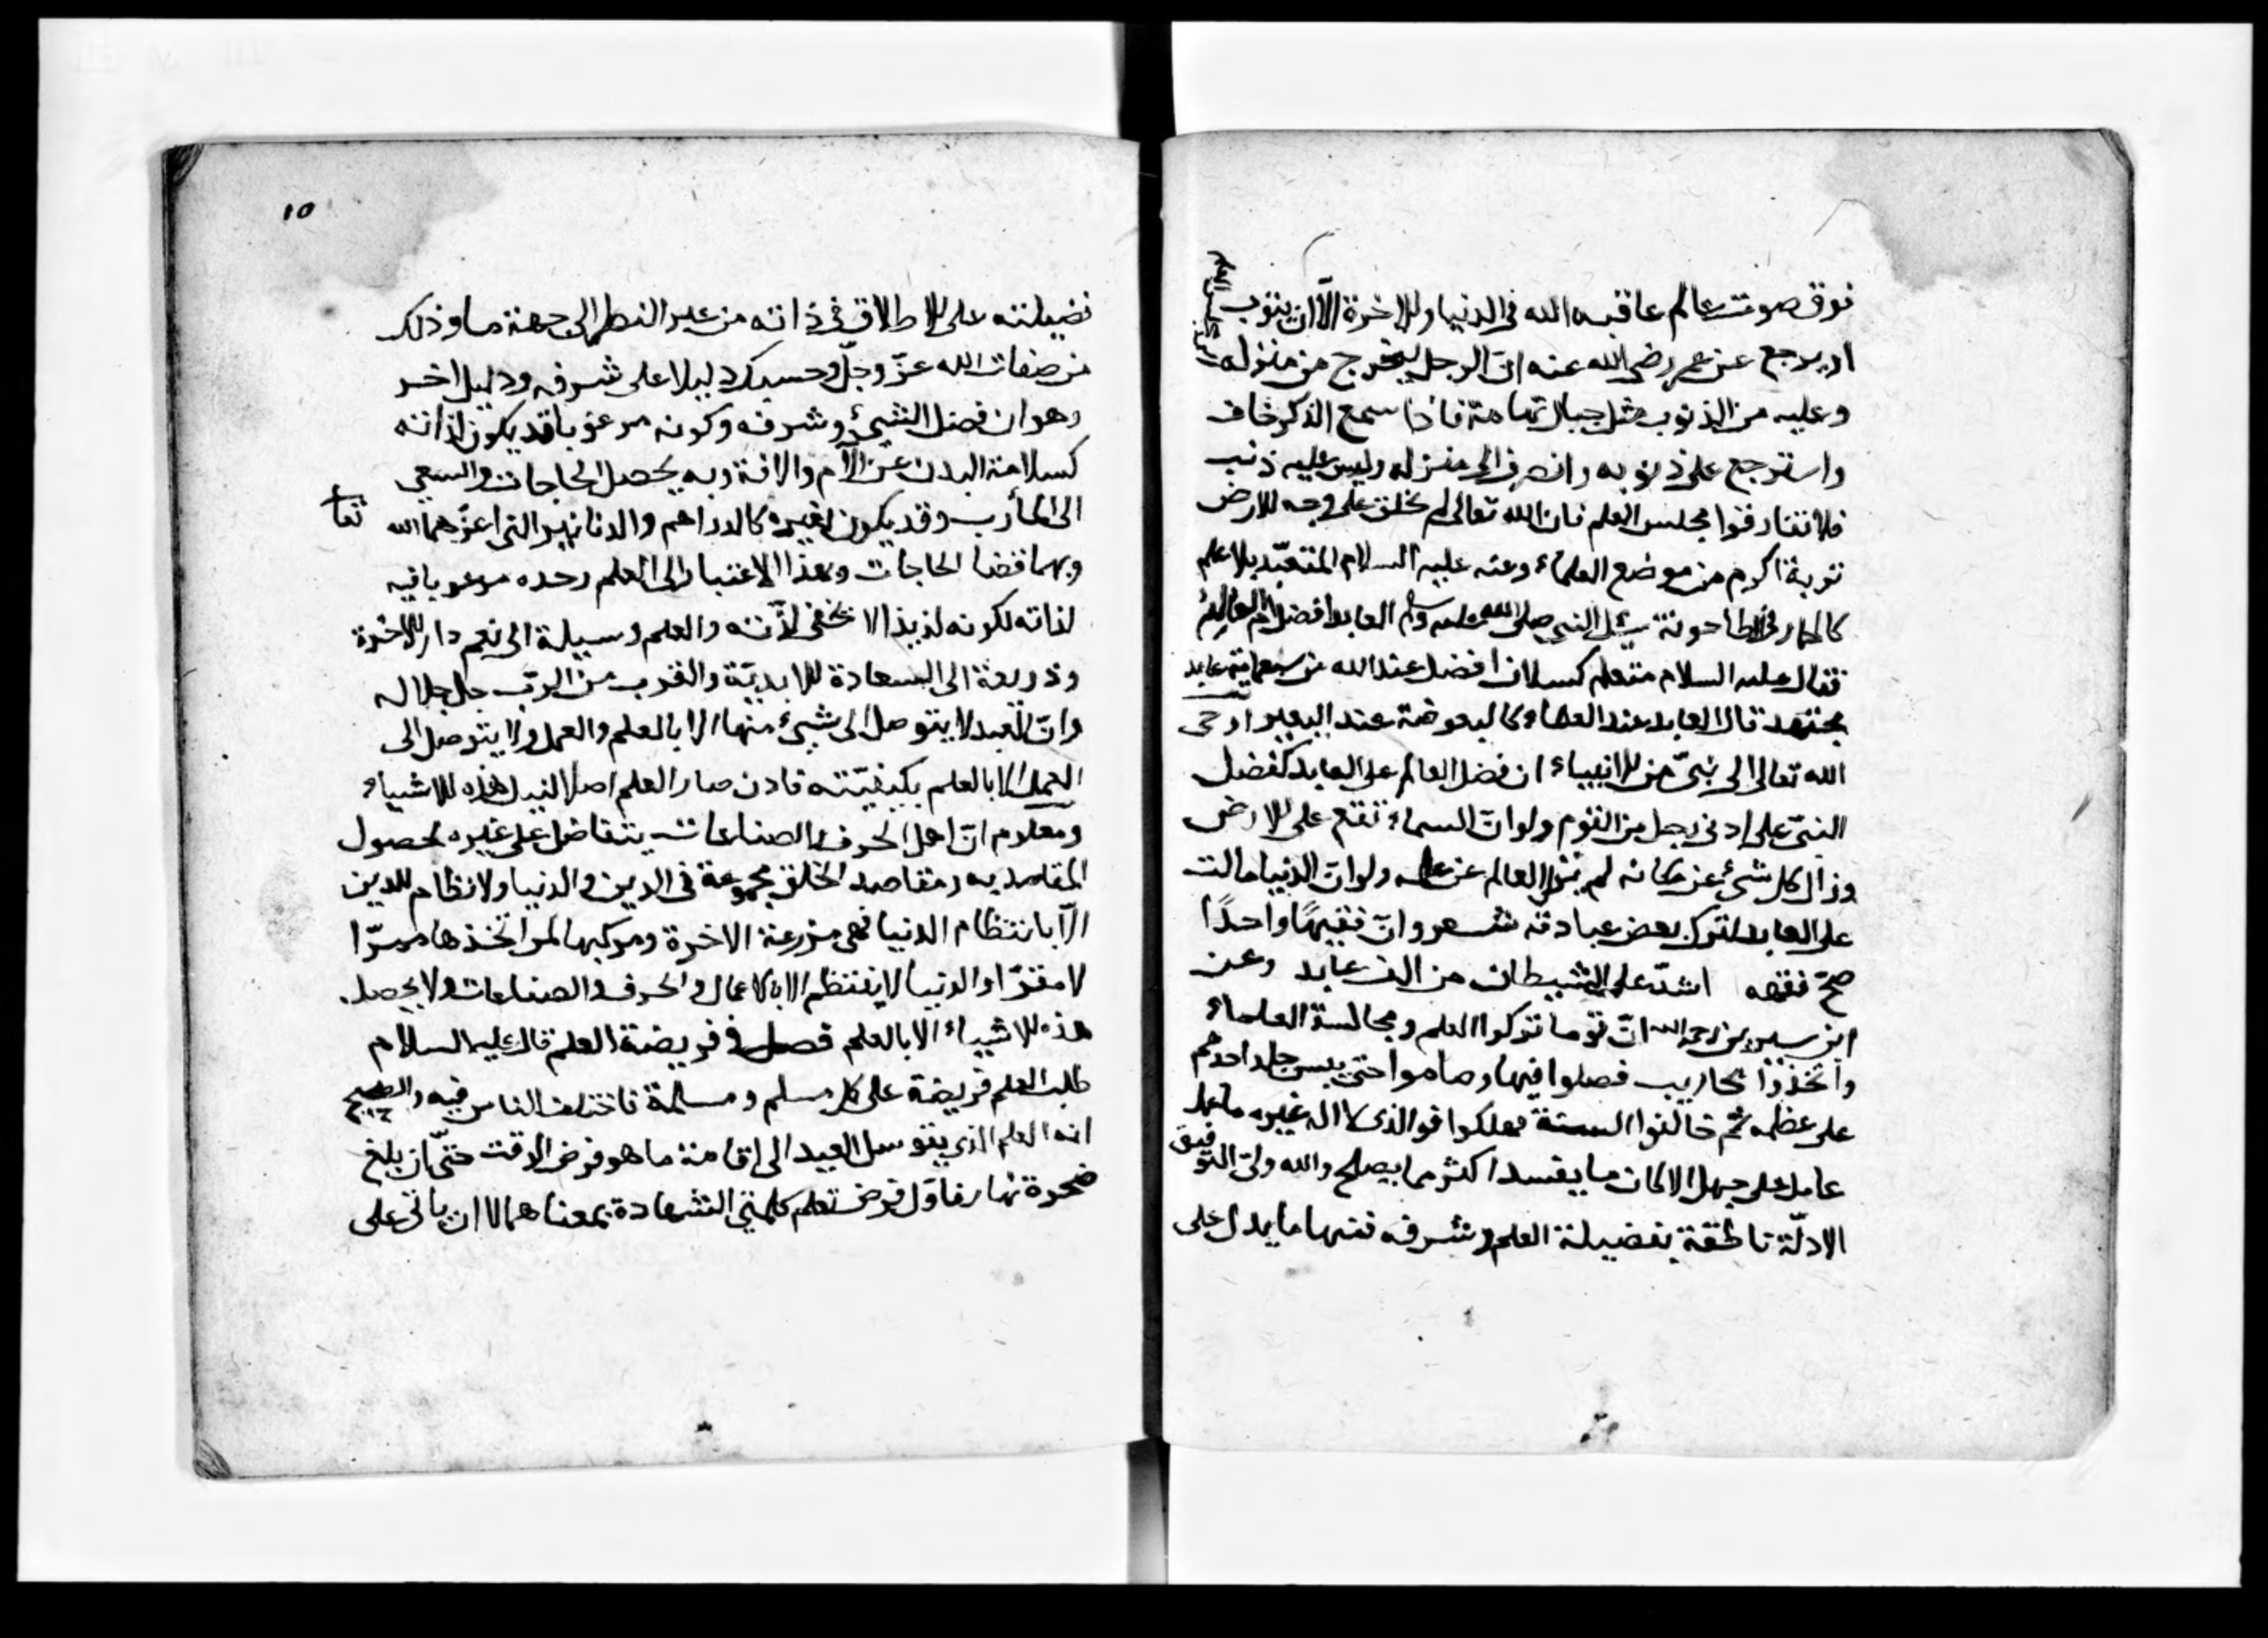 فوق صوت عالم عاقبه الله فى الدنيا والاخرة الّا ان يتوب
او يرجع عن عمر رضى الله عنه انّ الرجل ليخرج من منزله
وعليه من الذنوب مثل جبال تهامة فاذا سمع الذكر خاف
واسترجع على ذنوبه وانصرف الى منزله وليس عليه ذنب
فلا تفارقوا مجلس العلم فان الله تعالى لم يخلق على وجه الارض
تربة اكرم من موضع العلماء وعنه عليه السلام المتعبّد بلا علم
كالحمار فى الطاحونة سئل النبى صلى الله عليه وسلم العابد افضل ام العالم
فقال عليه السلام متعلم كسلان افضل عند الله من سبعماية عابد
مجتهد قال العابد عند العلماء كالبعوضة عند البعير اوحى
الله تعالى الى نبىّ من الانبياء ان فضل العالم على العابد كفضل
النبىّ على ادنى رجل من القوم ولو انّ السماء تقع على الارض
وزال كل شىء عن مكانه لم يزل العالم عن علمه ولو انّ الدنيا مالت
على العابد لترك بعض عبادته شعر وانّ فقيهًا واحدًا
صحّ فقهه اشدّ على الشيطان من الف عابد وعن
ابن سيرين رحمه الله انّ قوما تركوا العلم ومجالسة العلماء
واتخذوا محاريب فصلوا فيها وصاموا حتى يبس جلد احدهم
على عظمه ثم خالفوا السنة فهلكوا فوالذى لا اله غيره ما عمل
عامل على جهل الا كان ما يفسد اكثر مما يصلح والله ولىّ التوفيق
الادلّة ناطقة بفضيلة العلم وشرفه فمنها ما يدل على
١٥
فضيلته على الاطلاق فى ذاته من غير النظر الى جهة ما وذلك
من صفات الله عزّ وجلّ وحسبك دليلا على شرفه ودليل اخر
وهو ان فضل الشىء وشرفه وكونه مرغوبا قد يكون لذاته
كسلامة البدن عن الآلام والافة وبه يحصل الحاجات والسعى
الى المأرب وقد يكون لغيره كالدراهم والدنانير التى اعزّهما الله تعا
وبهما قضا الحاجات وبهذا الاعتبار الى العلم وحده مرغوبا فيه
لذاته لكونه لذيذا لا يخفى لذّته والعلم وسيلة الى نعم دار الاخرة
وذريعة الى السعادة الابديّة والقرب من الربّ جل جلاله
وانّ العبد لا يتوصل الى شىء منها الا بالعلم والعمل ولا يتوصل الى
العمل الا بالعلم بكيفيّته فاذن صار العلم اصلا لنيل هذه الاشياء
ومعلوم انّ اهل الحرف والصناعات يتفاضل على غيره لحصول
المقاصد به ومقاصد الخلق مجموعة فى الدين والدنيا ولا نظام للدين
الّا بانتظام الدنيا فهى مزرعة الاخرة ومركبها لمن اتخذها ممرّا
لا مقرّا والدنيا لا ينتظم الا بالاعمال والحرف والصناعات ولا يحصل
هذه الاشياء الا بالعلم فصل فى فريضة العلم قال عليه السلام
طلب العلم فريضة على كل مسلم ومسلمة فاختلف الناس فيه والصحيح
انه العلم الذى يتوسل العبد الى اقامة ما هو فرض الوقت حتّى ان بلغ
ضحوة نهار فاوّل فرض تعلم كلمتى الشهادة بمعناهما لا ان ياتى على